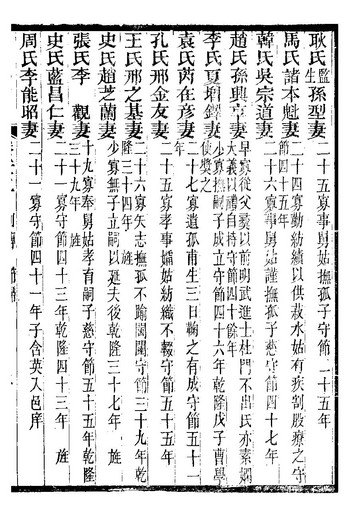 耿氏監生孫型妻二十五寡事舅姑撫孤子守節二十五年
馬氏諸本魁妻二十四寡勤紡績以供菽水姑有疾割股療之守節四十五年
韓氏吳宗道妻二十六寡事舅姑謹撫孤子慈守節四十五年
趙氏孫興享妻早寡從父爕以前明武進士杜門不出氏亦素嫻大義以禮自持守節四十餘年
李氏夏增鐸妻少寡撫嗣子成立守節四十六年乾隆戊子曹學使獎之
袁氏芮在彥妻二十七寡遺孤甫生三日鞠之有成守節五十一年
孔氏邢金友妻二十五寡孝事孀姑紡織不輟守節五十二年
王氏邢之基妻二十六寡矢志撫孤不踰閫閾守節三十九年乾隆三十四年 旌
史氏趙芝蘭妻少寡無子立嗣以延夫後乾隆三十七年 旌
張氏李 觀妻十九寡奉舅姑孝育嗣子慈守節五十五年乾隆三十九年 旌
史氏藍昌仁妻二十一寡守節四十三年乾隆四十三年 旌
周氏李能昭妻二十一寡守節四十一年子含英入邑庠